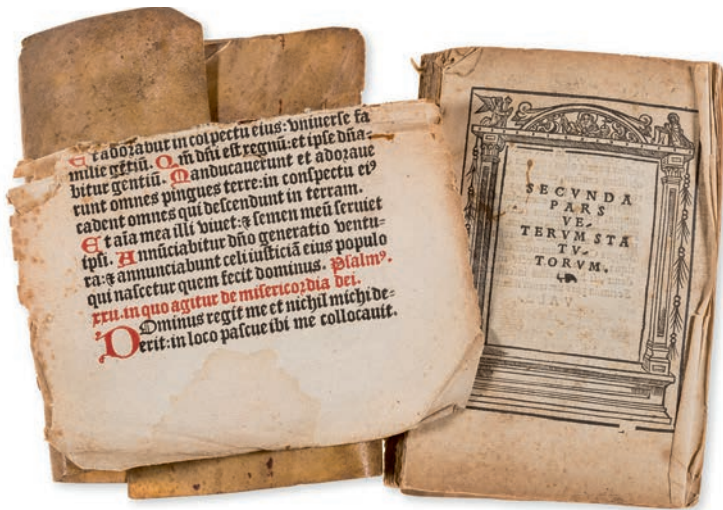 Et adorabūt in cōspectu eius: vniuerse fa
milie gētiū. Qm̄ dn̄i est regnū: et ipse dn̄a-
bitur gentiū. Manducauerunt et adoraue
runt omnes pingues terre: in conspectu eiꝰ
cadent omnes qui descendunt in terram.
Et aīa mea illi viuet: ⁊ semen meū seruiet
ipsi. Annūciabitur dn̄o generatio ventu-
ra: ⁊ annunciabunt celi iusticiā eius populo
qui nascetur quem fecit dominus. Psalmꝰ.
xxii. in quo agitur de misericordia dei.
Dominus regit me et nichil michi de-
erit: in loco pascue ibi me collocauit.
SECVNDA
PARS
VE-
TERVM STA
TV-
TORVM.